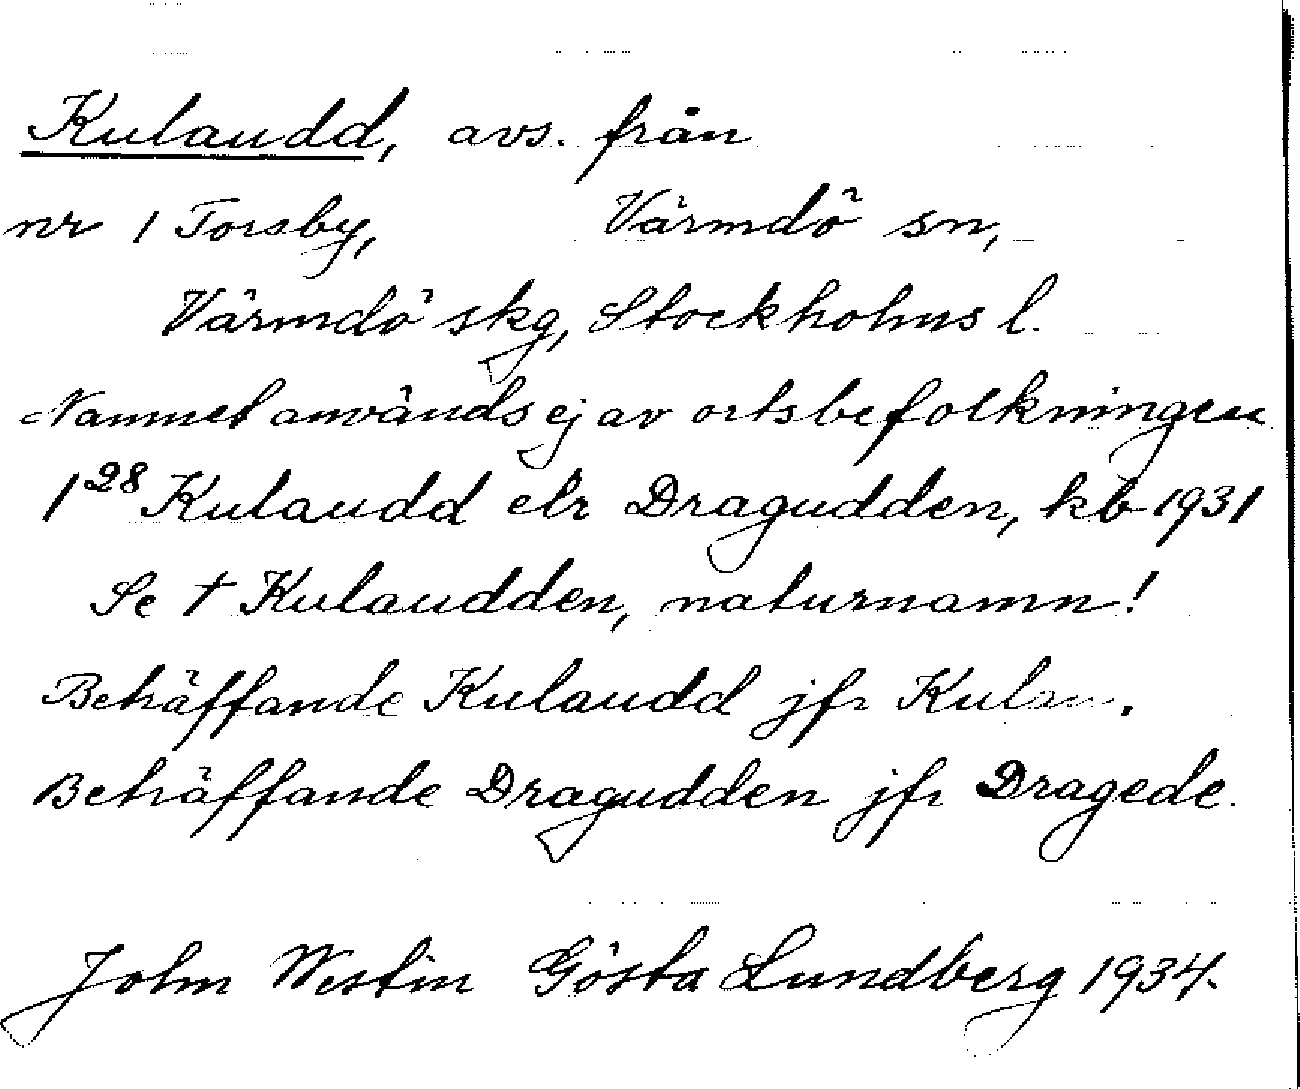 Kulaudd, avs. från
nr 1 Torsby, Värmdö sn,
Värmdö skg, Stockholms l.
Namnet används ej av ortsbefolkningen
1²⁸ Kulaudd elr Dragudden, kb 1931
Se † Kulaudden, naturnamn!
Beträffande Kulaudd jfr Kulan.
Beträffande Dragudden jfr Dragede.
John Westin Gösta Lundberg 1934.